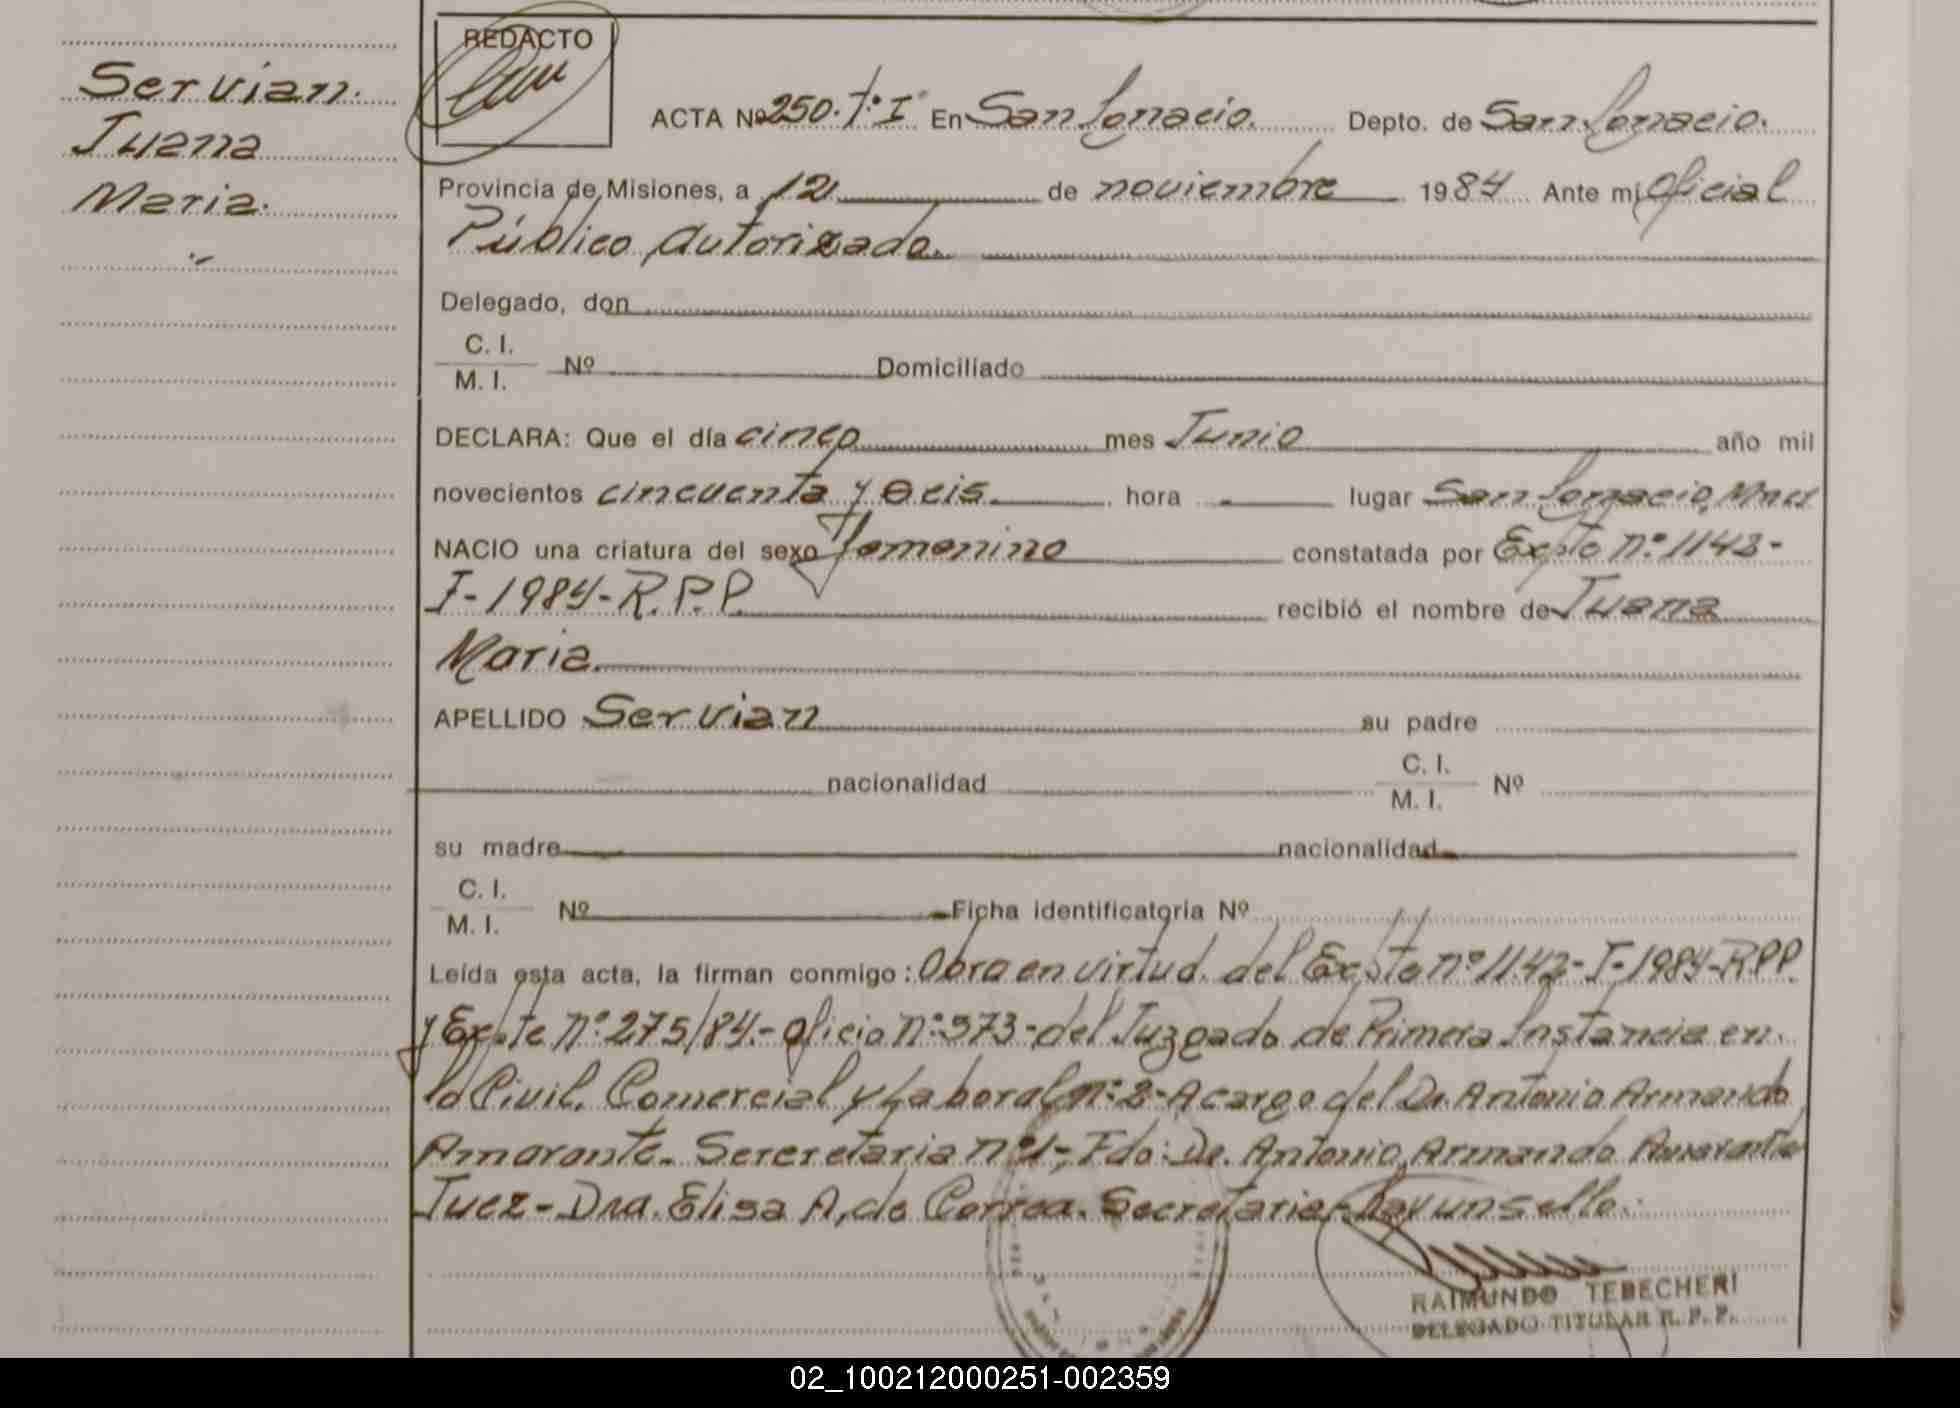 Servian.
Juana
Maria.
REDACTO
ACTA Nº 250. Tº I° En San Ignacio. Depto. de San Ignacio.
Provincia de Misiones, a 12 de noviembre 1984 Ante mi Oficial
Público Autorizado.
Delegado, don
C. I.
M. I. Nº Domiciliado
DECLARA: Que el día cinco mes Junio año mil
novecientos cincuenta y seis hora - lugar San Ignacio, Mnes
NACIO una criatura del sexo femenino constatada por Expte nº 1143-
I-1984-R.P.P. recibió el nombre de Juana
Maria.
APELLIDO Servian su padre
nacionalidad C. I.
M. I. Nº
su madre nacionalidad
C. I.
M. I. Nº Ficha identificatoria Nº
Leída esta acta, la firman conmigo: Obra en virtud. del Expte nº 1143-I-1984-R.P.P.
y Expte Nº 275/84.- Oficio nº 973- del Juzgado de Primera Instancia en
lo Civil, Comercial y Laboral nº 2- A cargo del Dr. Antonio Armando
Amarante.- Sercretaria nº 1-, Fdo: Dr. Antonio Armando Amarante
Juez- Dra. Elisa A, de Correa. Secretaria- Hay un sello.
RAIMUNDO TEBECHERI
DELEGADO TITULAR R. P. P.
02_100212000251-002359